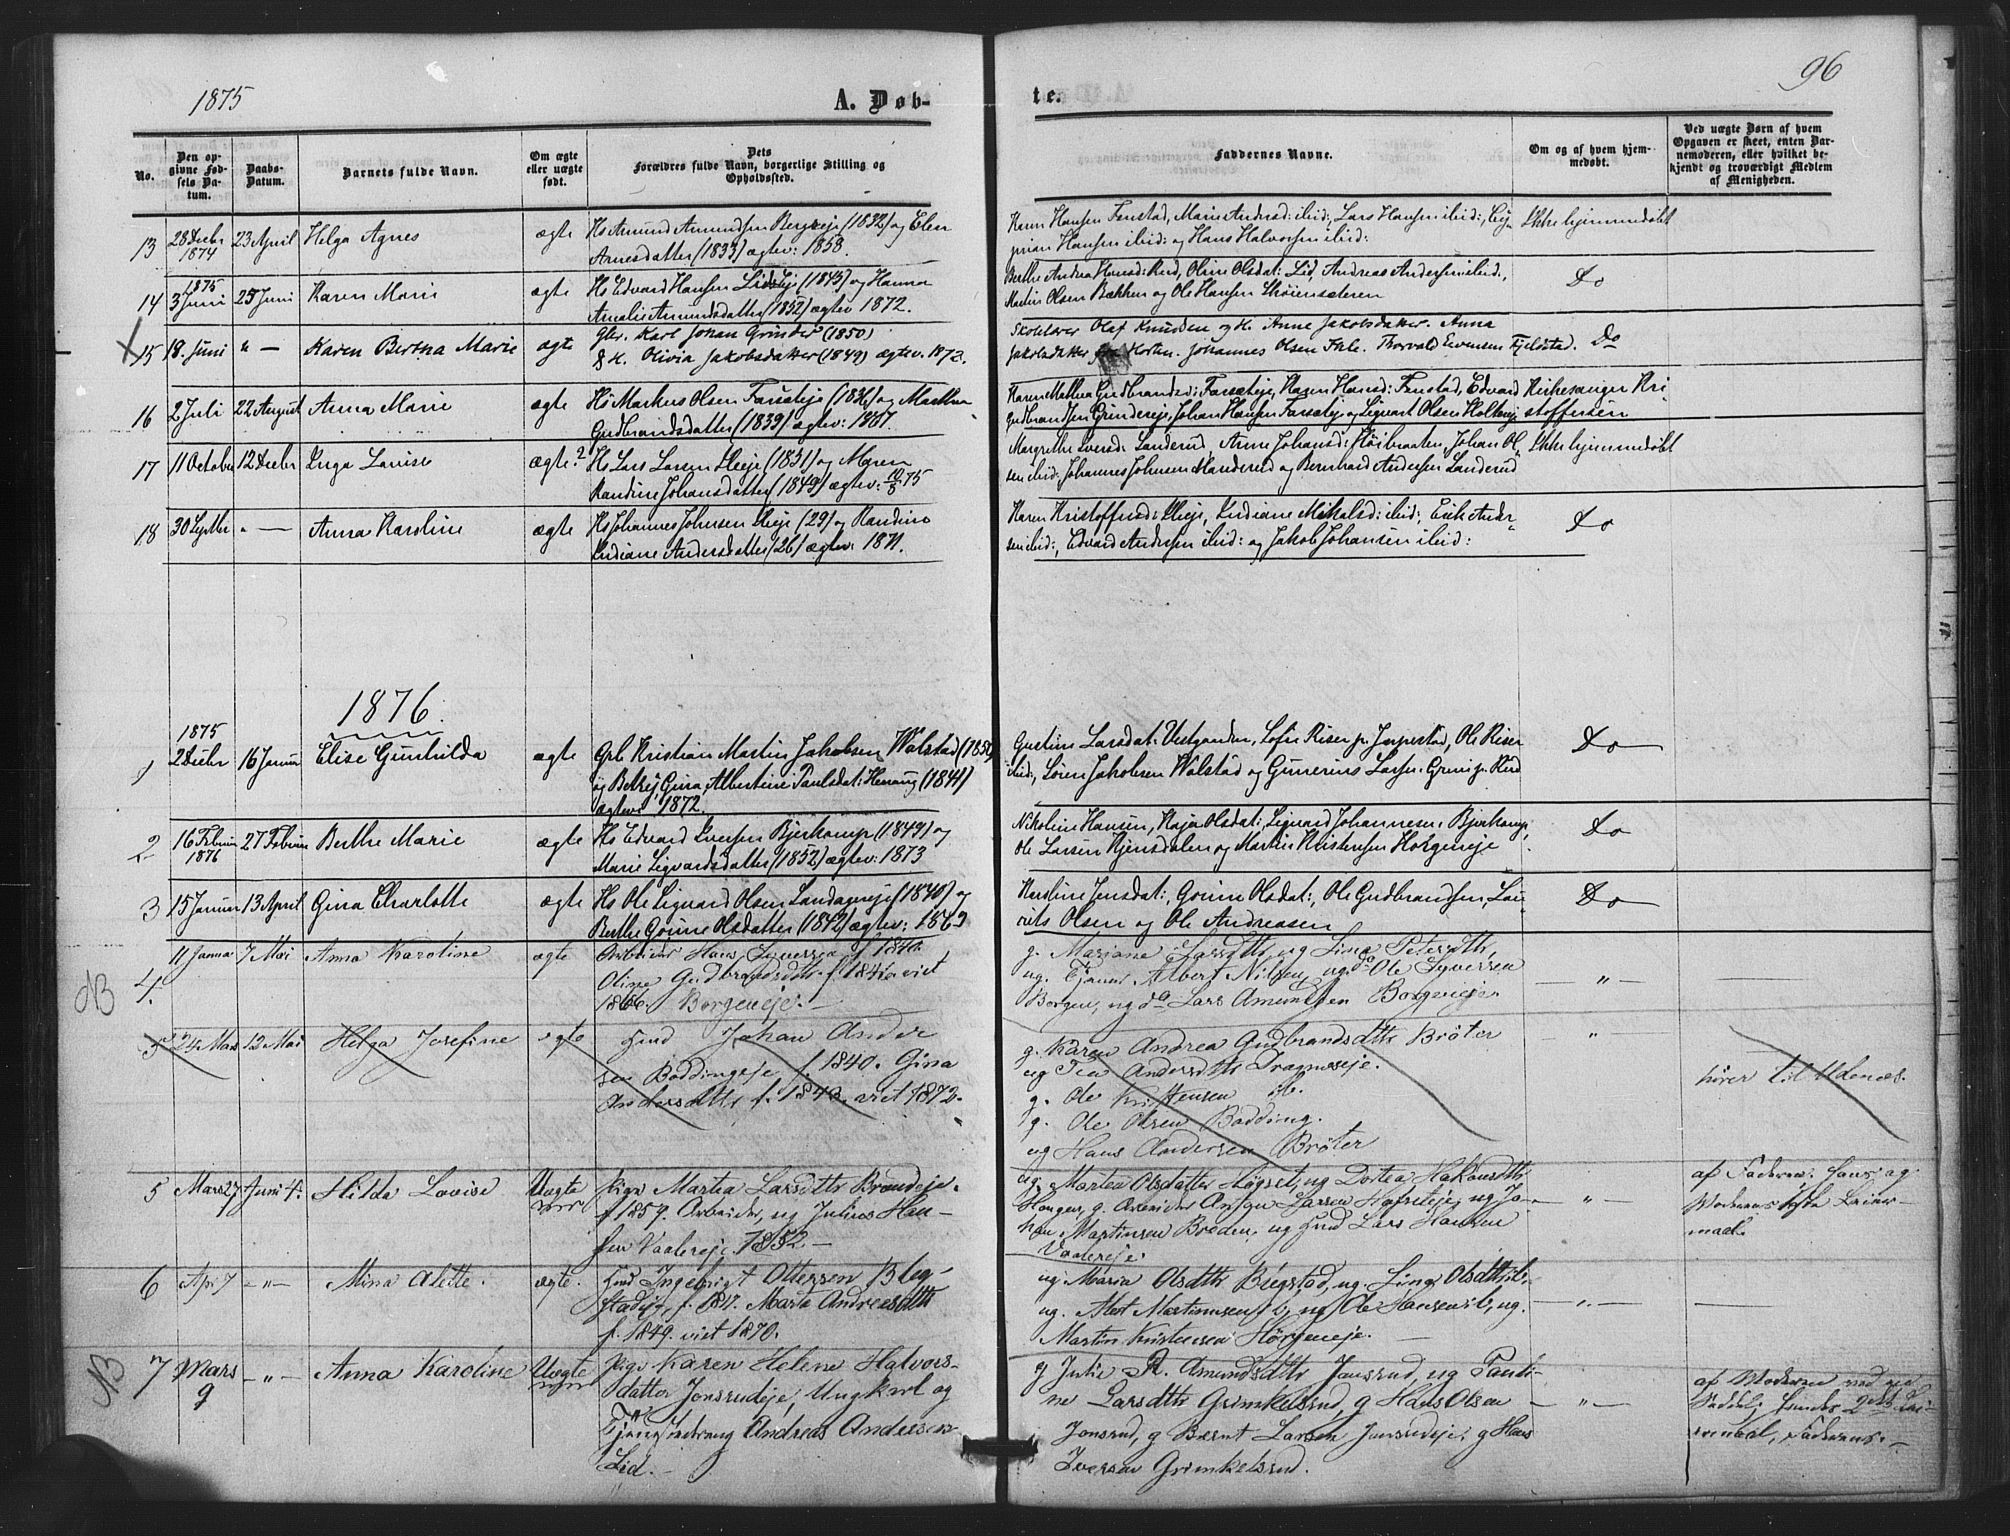 1875
A. Døb-
te.
96
No.
Den op-
givne Fød-
sels Da-
tum.
Daabs-
Datum.
Barnets fulde Navn.
Om ægte
eller uægte
født.
Dets
Forældres fulde Navn, borgerlige Stilling og
Opholdssted.
Faddernes Navne.
Om og af hvem hjem-
medøbt.
Ved uægte Børn af hvem
Opgaven er skeet, enten Bar-
nemoderen, eller hvilket be-
kjendt og troværdigt Medlem
af Menigheden.
13
28 Decbr
1874
23 April
Helga Agnes
ægte
Hs Amund Amundsen Bergseje (1832) og Elen
Arnesdatter (1833) ægtev: 1858.
Karen Hansen Fenstad, Marie Andersd: ibid:, Lars Hansen ibid:,
prian Hansen ibid: og Hans Halvorsen ibid:
Ikke hjemmedøbt
14
1875
3 Juni
25 Juni
Karen Marie
ægte
Hs Edvard Hansen Lidseje (1845) og Hanna
Amalie Amundsdatter (1852) ægtev 1872.
Berthe Andrea Hansd: Lid, Oline Olsdat: Lid, Andreas Andersen ibid.,
Martin Olsen Bækken og Ole Hansen Skøiensæteren
Do
15
18. Juni
" —
Karen Bertha Marie
ægte
Gbr. Karl Johan Grinder (1850)
& H. Olivia Jakobsdatter (1849) ægtev. 1873.
Skolelærer Olaf Knudsen og H. Anne Jakobsdatter. Anna
Jakobsdatter Horten. Johannes Olsen Thorvald Evensen Fjeldstad.
Do
16
2 Juli
22 August
Anna Marie
ægte
Hs Markus Olsen Farsæteje (1836) og Marthea
Gudbrandsdatter (1839) ægtev: 1861.
Karen Mathea Gudbrandsd: Farsæteje, Karen Hansd: Fenstad, Edvard
Gudbrandsen Grindereje, Johan Hansen Farsætej og Sigvart Olsen
Kirkesanger Kri
stoffersen
17
11 October
12 Decbr
Inga Lovise
ægte?
Hs Lars Larsen Lieje (1831) og Maren
Randine Johansdatter (1849) ægtev: 10/8 75
Margrethe Iversd: Landerud, Anne Johansd: Høibraaten, Johan Ol
sen ibid: Johannes Johnsen Manderud og Bernhard Andersen Landerud
Ikke hjemmedøbt
18
30 Septbr
" —
Anna Karoline
ægte
Hs Johannes Johnsen Lieje (29) og Randine
Indiane Andersdatter (26) ægtev: 1871.
Karen Kristoffersd: Lieje, Indiane Mikalsd: ibid:, Erik Ander
sen ibid:, Edvard Andersen ibid: og Jakob Johansen ibid:
Do
1876.
1
1875
2 Decbr
16 Januar
Elise Gunhilda
ægte
Gbr Kristian Martin Jakobsen Wolstad (1850)
og Betzij Gina Albertine Paulsdat: Henaug (1841)
ægtev: 1872.
Gustine Larsdat: Vestgarden, Sofie Riser p. Jeppestad, Ole Riser
ibid:, Søren Jakobsen Wolstad og Gunerius Larsen
Do
2
16 Februar
1876
27 Februar
Berthe Marie
ægte
Hs Edvard Iversen Bjerkamp (1849) og
Marie Sigvardsdatter (1852) ægtev: 1873
Nikoline Hansen, Kaja Olsdat:, Sigvard Johannesen, Bjerkamp,
Ole Larsen og Martin Kristensen Horgeneje
Do
3
15 Januar
13 April
Gina Charlotte
ægte
Hs Ole Sigvard Olsen (1840) og
Berthe Gorine Olsdatter (1842) ægtev: 1863
Karoline Jensdat:, Gorine Olsdat:, Ole Gudbrandsen, Lau
rits Olsen og Ole Andreasen
Do
NB
4.
11 Janua
7 Mai
Anna Karoline
ægte
Arbeider Hans Syversen f. 1840.
Oline Gudbrandsdtr f. 1841 viet
1866. Borgeneje. —
g. Mariane Larsdtr, ug Lina Petersdtr,
ug. Tjener Albert Nilsen, ug do Ole Syversen
Borgen, ug do Lars Amundsen Borgeneje
— " —
5
24 Mars
12 Mai
Helga Josefine
ægte
Husd Johan Ander
sen Boddingeje f. 1840. Gina
Andersdtr f. 1843. viet 1872.
g. Karen Andrea Gudbrandsdtr Brøter
ug Tea Andersdtr Dragneseje.
g. Ole Kristensen ib.
g. Ole Olsen Bodding.
ug Hans Andersen Brøter
"
hører til Udenæs.
5
Mars 27
Juni 4.
Hilda Lovise
Uægte
Pige Martea Larsdtr Brøndeje.
f. 1857. Arbeider, ug Julius Han-
sen Vaalereje 1852 —
ug. Martea Olsdatter Løgset, ug Dortea Hakonsdtr
Haugen, g. Arbeider Larsen ug Jo-
han Martinsen Brøden, ug Husd Lars Hansen
Vaalereje.
— " —
af Faderen.
Moderens
maal.
6
Apr 7
— " —
Mina Alette.
ægte.
Husd Ingebrigt Ottersen Big-
stadeje, f. 1847. Marta Andreasdtr
f. 1849. viet 1870.
ug. Maria Olsdtr Bigstad, ug. Lina Olsdtr ib.
ug. Martinusen ib, ug Ole Hansen ib, ug.
Martin Kristensen Horgeneje. —
— " —
NB
7
Mars
9
— " —
Anna Karoline
Uægte
Pige Karen Helene Halvors-
datter Jonsrudeje, Ungkarl og
Andreas Andersen
Lid. —
g Julie R. Amundsdtr Jonsrud, ug Pauli-
ne Larsdtr Grimkelsrud, g Hans Olsen
Jonsrud, g Bernt Larsen Jonsrudeje, g Hans
Iversen Grimkelsrud.
— " —
af Moderen
Faderens —